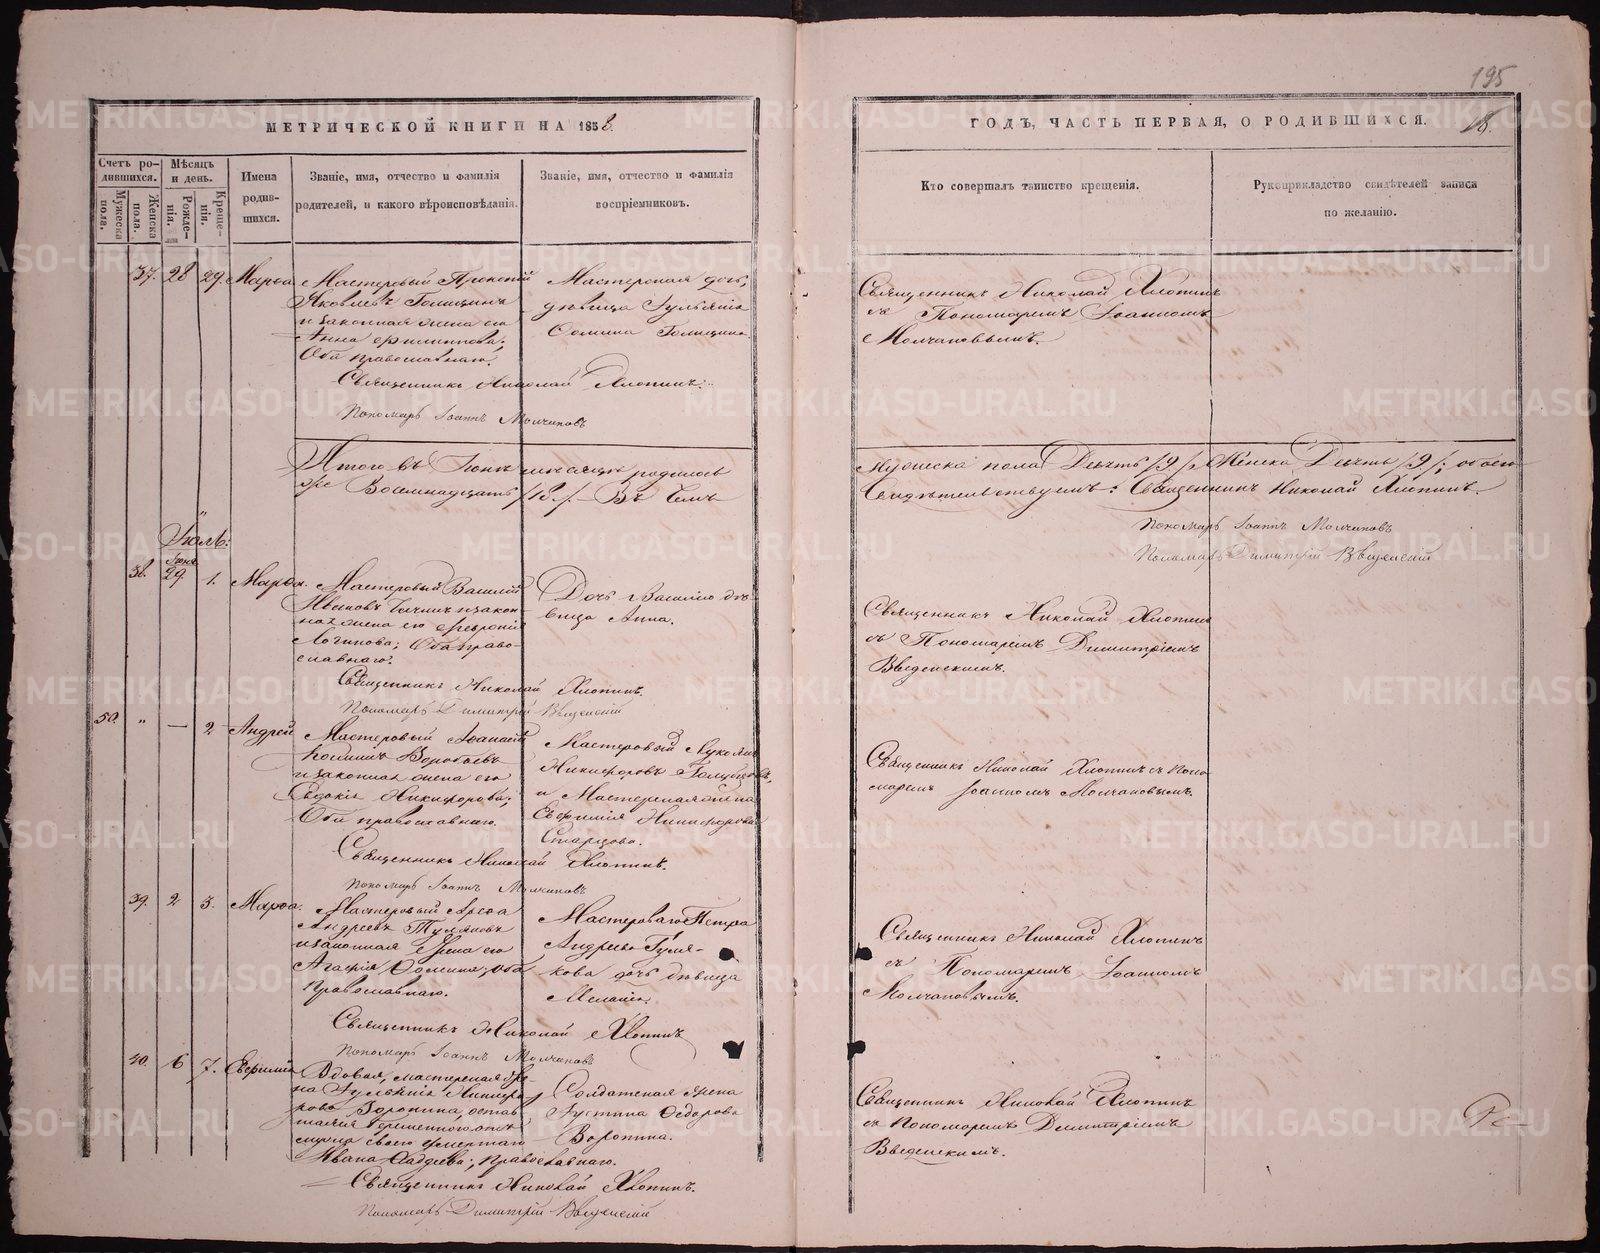 195
МЕТРИЧЕСКОЙ КНИГИ НА 1858.
ГОДЪ, ЧАСТЬ ПЕРВАЯ, О РОДИВШИХСЯ.
18.
Счетъ родившихся.
Мужеска пола.
Женска пола.
Мѣсяцъ и день.
Рожденія.
Крещенія.
Имена родившихся.
Званіе, имя, отчество и фамилія
родителей, и какого вѣроисповѣданія.
Званіе, имя, отчество и фамилія
воспріемниковъ.
Кто совершалъ таинство крещенія.
Рукоприкладство свидѣтелей записи
по желанію.
37. 28 29. Марѳа
Мастеровый Прокопій
Яковлевъ Голицинъ
и законная жена его
Анна Филиппова;
Оба православнаго.
Мастерская дочь,
дѣвица Гульянія
Ѳомина Голицина.
Священникъ Николай Хлопинъ
съ Пономаремъ Іоанномъ
Молчановымъ.
Священникъ Николай Хлопинъ.
Пономарь Іоаннъ Молчановъ
Итого въ Іюнѣ мѣсяцѣ родилось
Восемнадцать /18/. Въ чемъ
мужеска пола Девять /9/, Женска Девять /9/; обоего
Свидѣтельствуемъ: Священникъ Николай Хлопинъ.
Пономарь Іоаннъ Молчановъ
Пономарь Димитрій Введенскій
Іюль:
38. Іюня 29. 1. Марѳа.
Мастеровый Василій
Ивановъ и закон-
ная жена его Февронія
Логинова; Оба право-
славнаго.
Дочь Василію дѣ-
вица Анна.
Священникъ Николай Хлопинъ
съ Пономаремъ Димитріемъ
Введенскимъ.
Священникъ Николай Хлопинъ.
Пономарь Димитрій Введенскій
50. „ — 2 Андрей
Мастеровый Аѳанасій
Козминъ Воробьевъ
и законная жена его
Евдокія Никифорова;
Оба православнаго.
Мастеровый
Никифоровъ Голубцовъ,
и Мастерская жена
Евфимія Никифорова
Старцова.
Священникъ Николай Хлопинъ съ Поно-
маремъ Іоанномъ Молчановымъ.
Священникъ Николай Хлопинъ.
Пономарь Іоаннъ Молчановъ
39. 2 3. Марѳа.
Мастеровый Арефа
Андреевъ Туляковъ
и законная жена его
Агафія Ѳомина; оба
Православнаго.
Мастероваго Петра
Андреева Туля-
кова дочь дѣвица
Меланія.
Священникъ Николай Хлопинъ
съ Пономаремъ Іоанномъ
Молчановымъ.
Священникъ Николай Хлопинъ
Пономарь Іоаннъ Молчановъ
40. 6 7. Евфимія
Вдовая, мастерская же-
на Гульянія Никифо-
рова Воронина, остав-
шаяся беременною отъ
мужа своего умершаго
Ивана Фадѣева; православнаго.
Солдатская жена
Іустина Ѳедорова
Воронина.
Священникъ Николай Хлопинъ
съ Пономаремъ Димитріемъ
Введенскимъ.
Священникъ Николай Хлопинъ.
Пономарь Димитрій Введенскій
METRIKI.GASO-URAL.RU